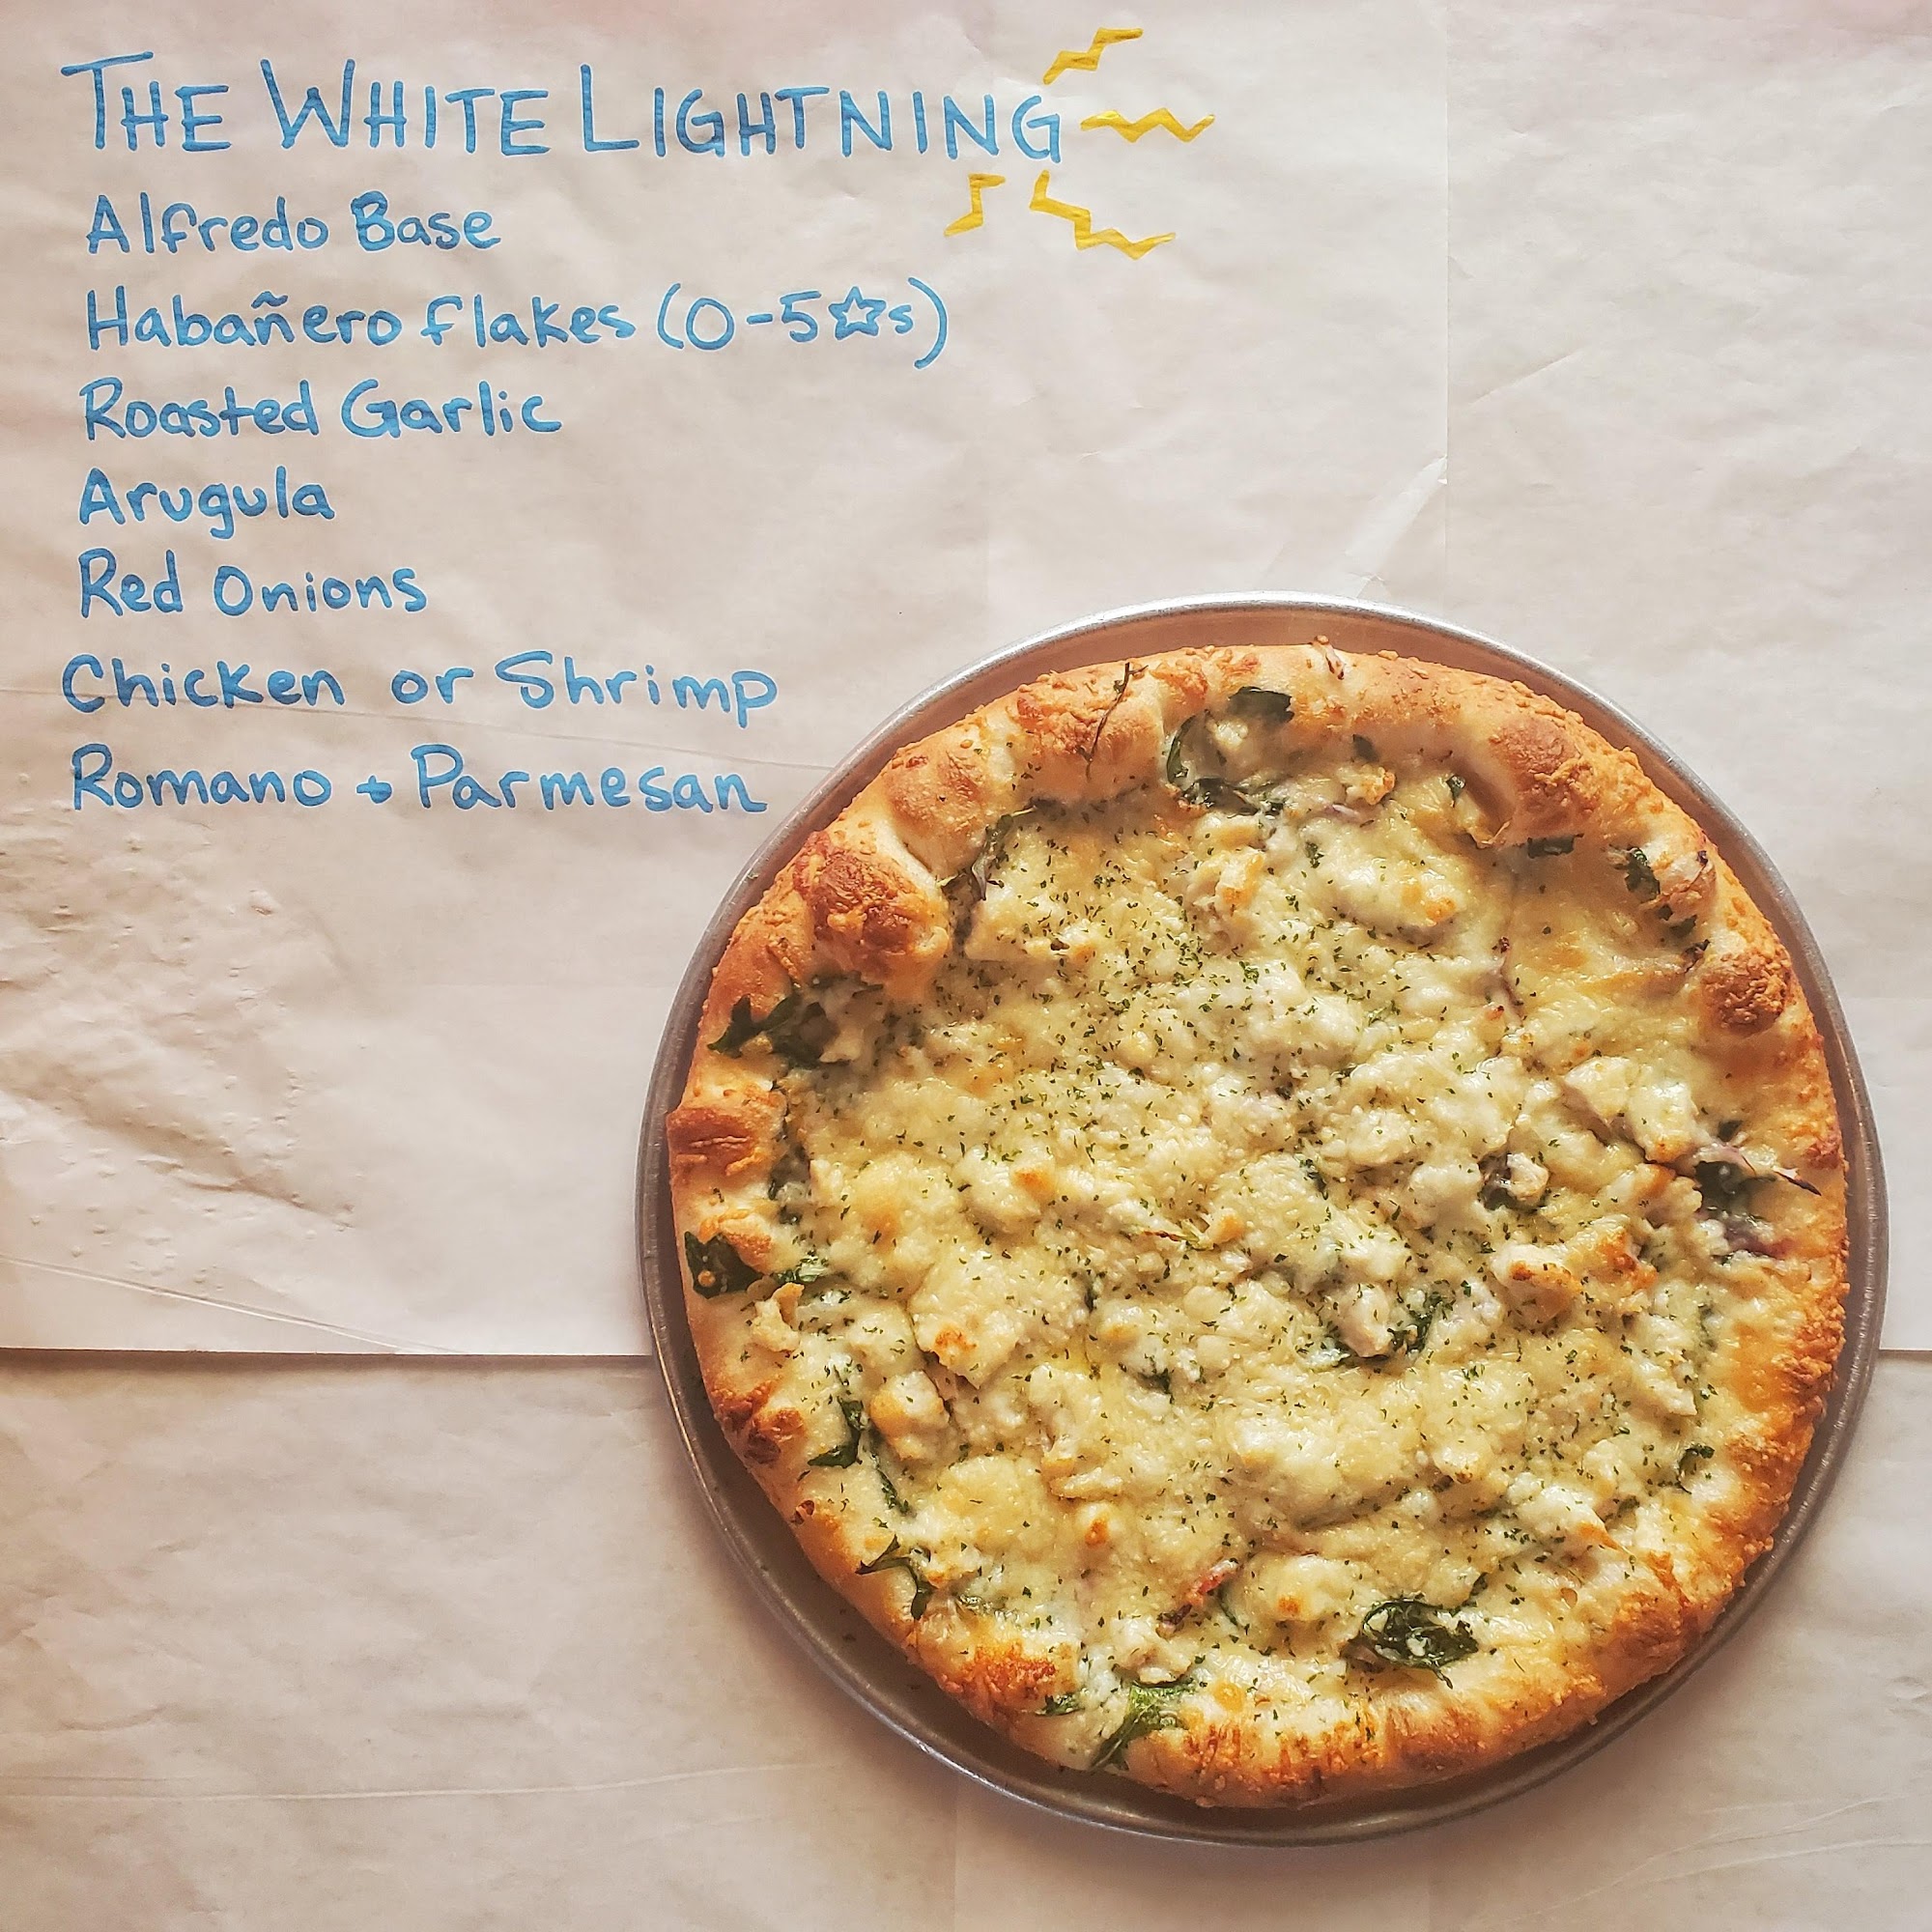 THE WHITE LIGHTNING
Alfredo Base
Habañero flakes (0-5☆s)
Roasted Garlic
Arugula
Red Onions
Chicken or Shrimp
Romano + Parmesan